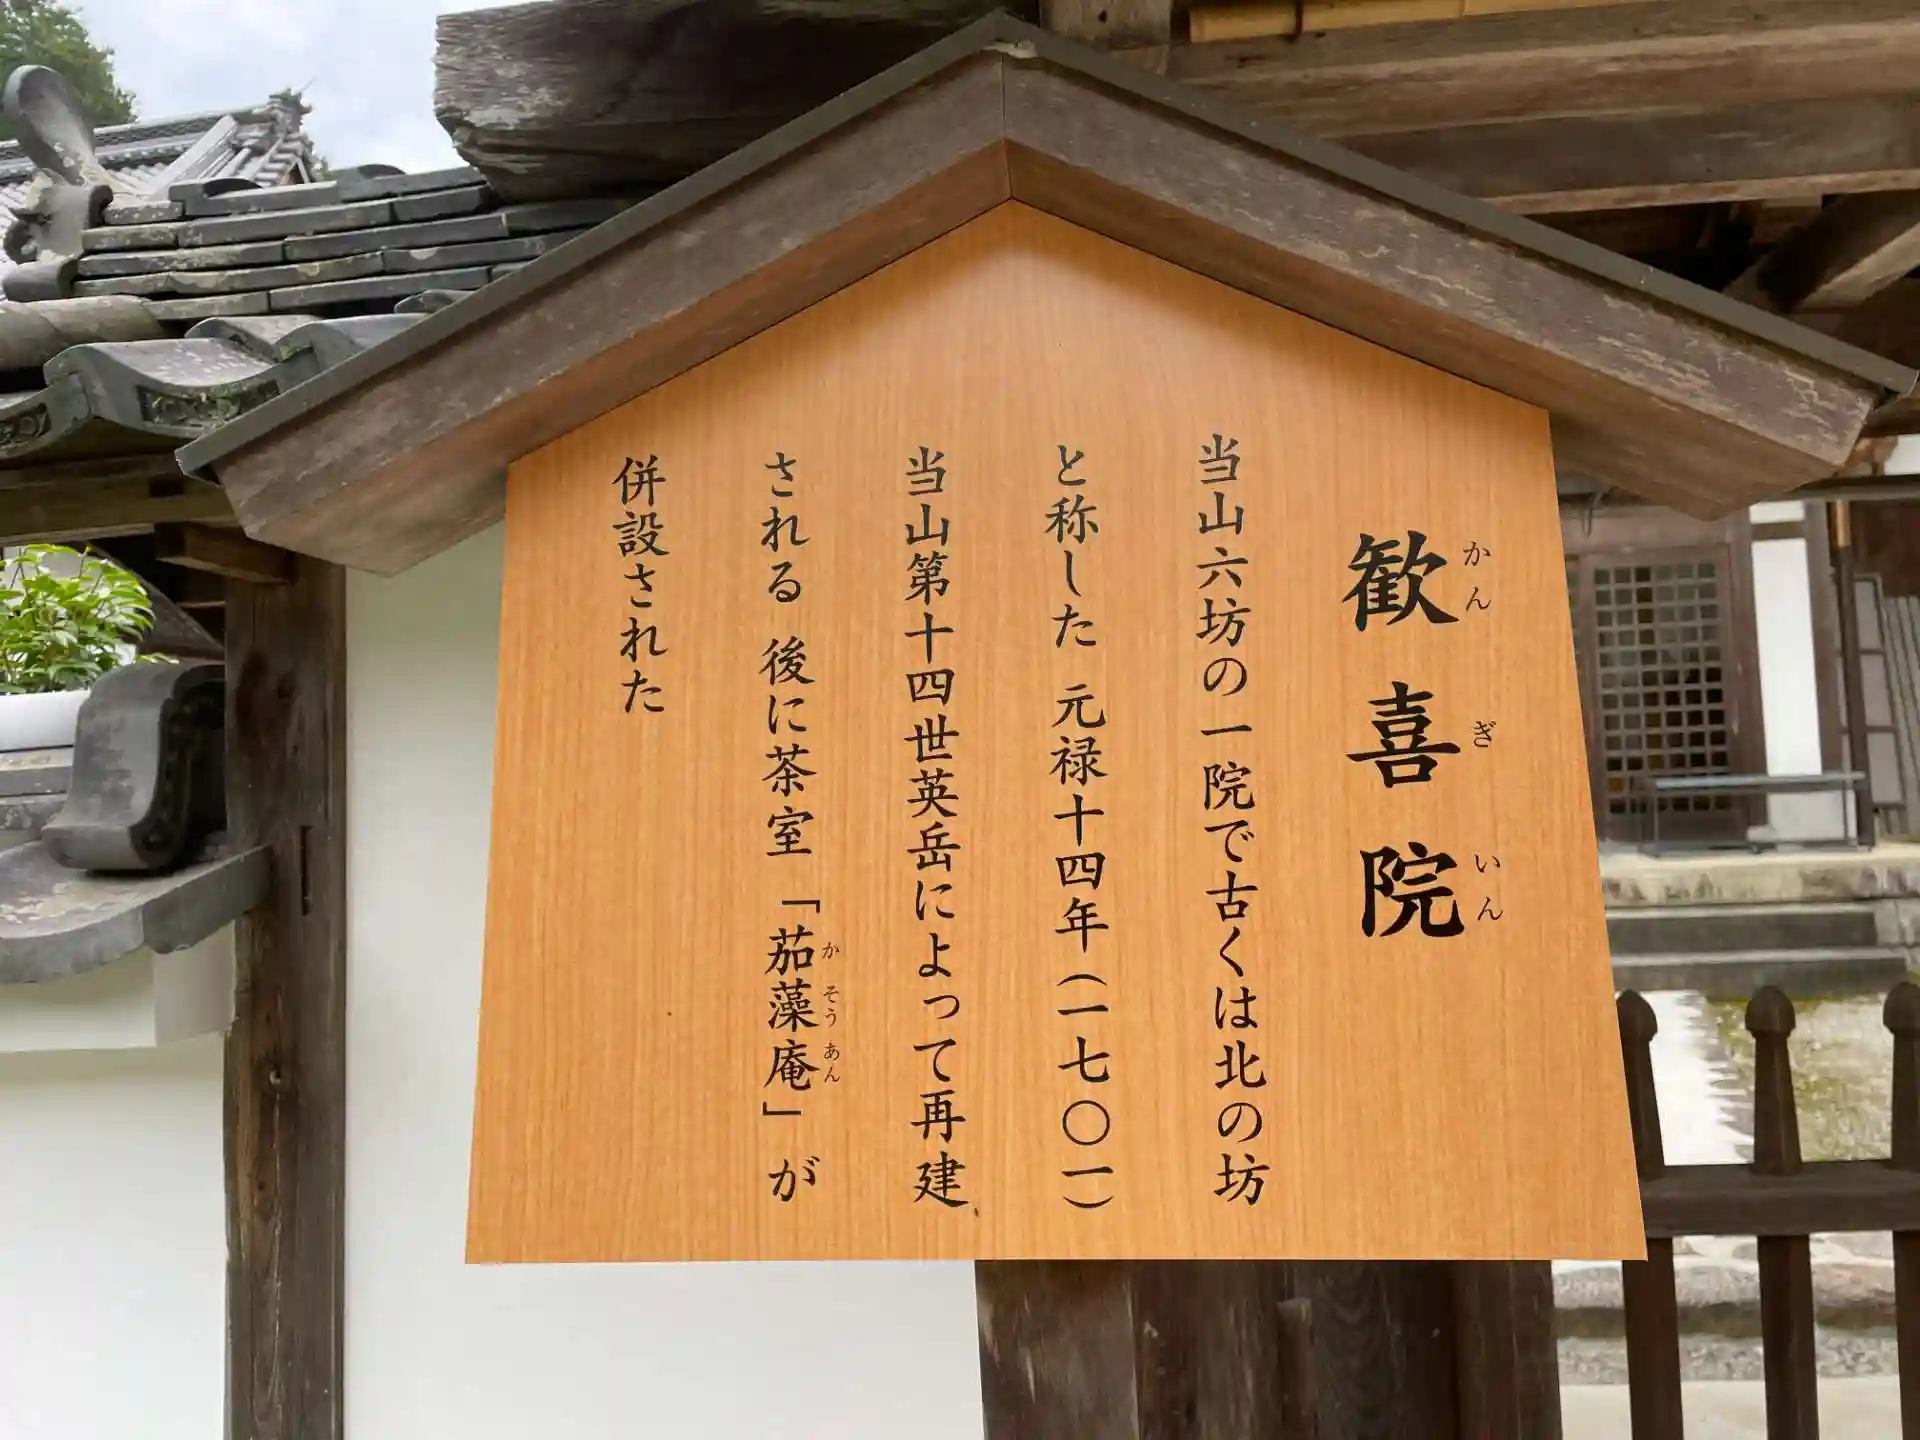 歓喜院
かんぎいん
当山六坊の一院で古くは北の坊
と称した 元禄十四年(一七〇一)
当山第十四世英岳によって再建
される 後に茶室「茄藻庵」が
かそうあん
併設された